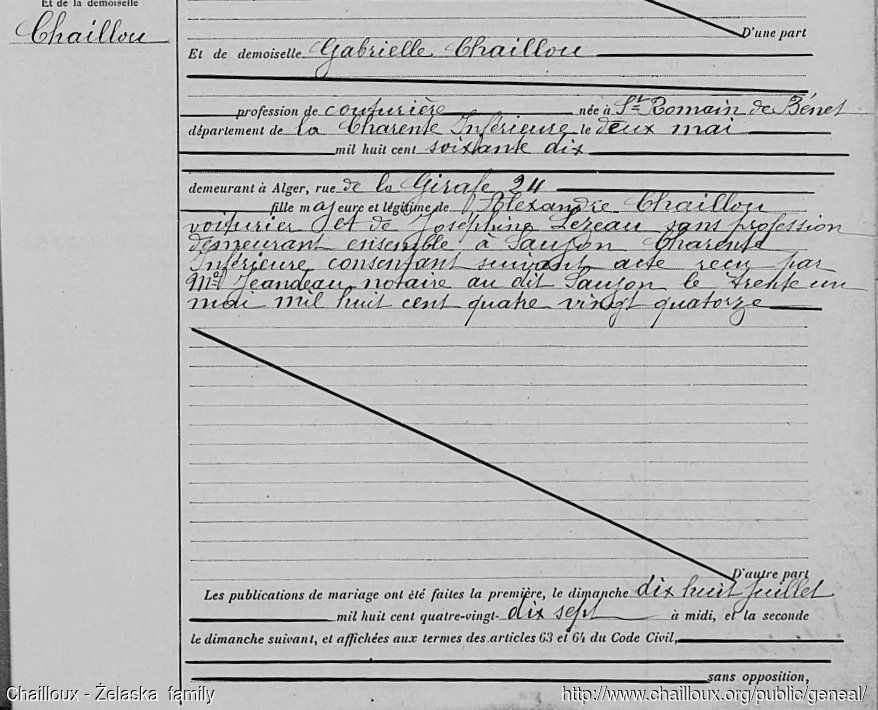 Et de la demoiselle
Chaillou
D'une part
Et de demoiselle Gabrielle Chaillou
profession de couturière née à St Romain de Bénet
département de la Charente Inférieure le deux mai
mil huit cent soixante dix
demeurant à Alger, rue de la Girafe 24
fille majeure et légitime de Alexandre Chaillou
voiturier et de Joséphine Lézeau sans profession
demeurant ensemble à Saujon Charente
Inférieure consentant suivant acte reçu par
Me Jeandeau notaire au dit Saujon le trente un
mai mil huit cent quatre vingt quatorze
D'autre part
Les publications de mariage ont été faites la première, le dimanche dix huit juillet
mil huit cent quatre-vingt-dix sept à midi, et la seconde
le dimanche suivant, et affichées aux termes des articles 63 et 64 du Code Civil,
sans opposition,
Chailloux - Żelaska family
http://www.chailloux.org/public/geneal/